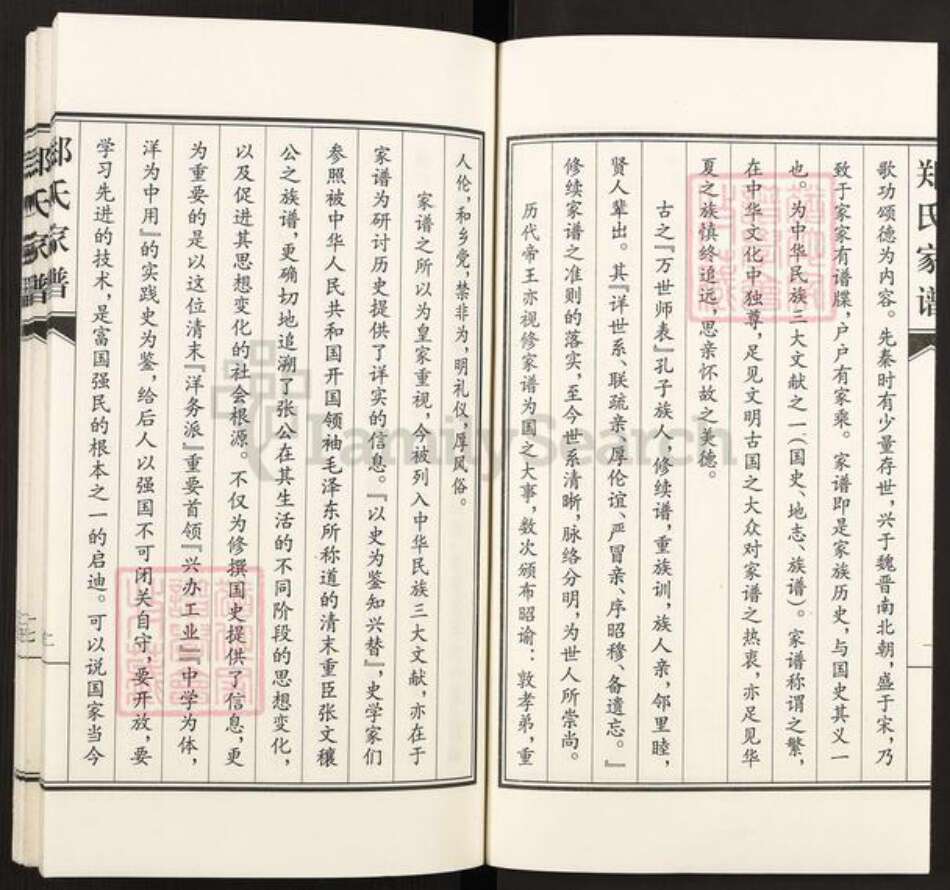 郑氏家谱
歌功颂德为内容。先秦时有少量存世，兴于魏晋南北朝，盛于宋，乃
致于家家有谱牒，户户有家乘。家谱即是家族历史，与国史其义一
也。为中华民族三大文献之一（国史、地志、族谱）。家谱称谓之繁，
在中华文化中独尊，足见文明古国之大众对家谱之热衷，亦足见华
夏之族慎终追远，思亲怀故之美德。
古之『万世师表』孔子族人，修续谱，重族训，族人亲，邻里睦，
贤人辈出。其『详世系、联疏亲、厚伦谊、严冒亲、序昭穆、备遗忘。』
修续家谱之准则的落实，至今世系清晰，脉络分明，为世人所崇尚。
历代帝王亦视修家谱为国之大事，数次颁布昭谕：敦孝弟，重
人伦，和乡党，禁非为，明礼仪，厚风俗。
家谱之所以为皇家重视，今被列入中华民族三大文献，亦在于
家谱为研讨历史提供了详实的信息。『以史为鉴知兴替』，史学家们
参照被中华人民共和国开国领袖毛泽东所称道的清末重臣张文穰
公之族谱，更确切地追溯了张公在其生活的不同阶段的思想变化，
以及促进其思想变化的社会根源。不仅为修撰国史提供了信息，更
为重要的是以这位清末『洋务派』重要首领『兴办工业』『中学为体，
洋为中用』的实践史为鉴，给后人以强国不可闭关自守，要开放，要
学习先进的技术，是富国强民的根本之一的启迪。可以说国家当今
郑氏家谱
郑氏家谱
FamilySearch